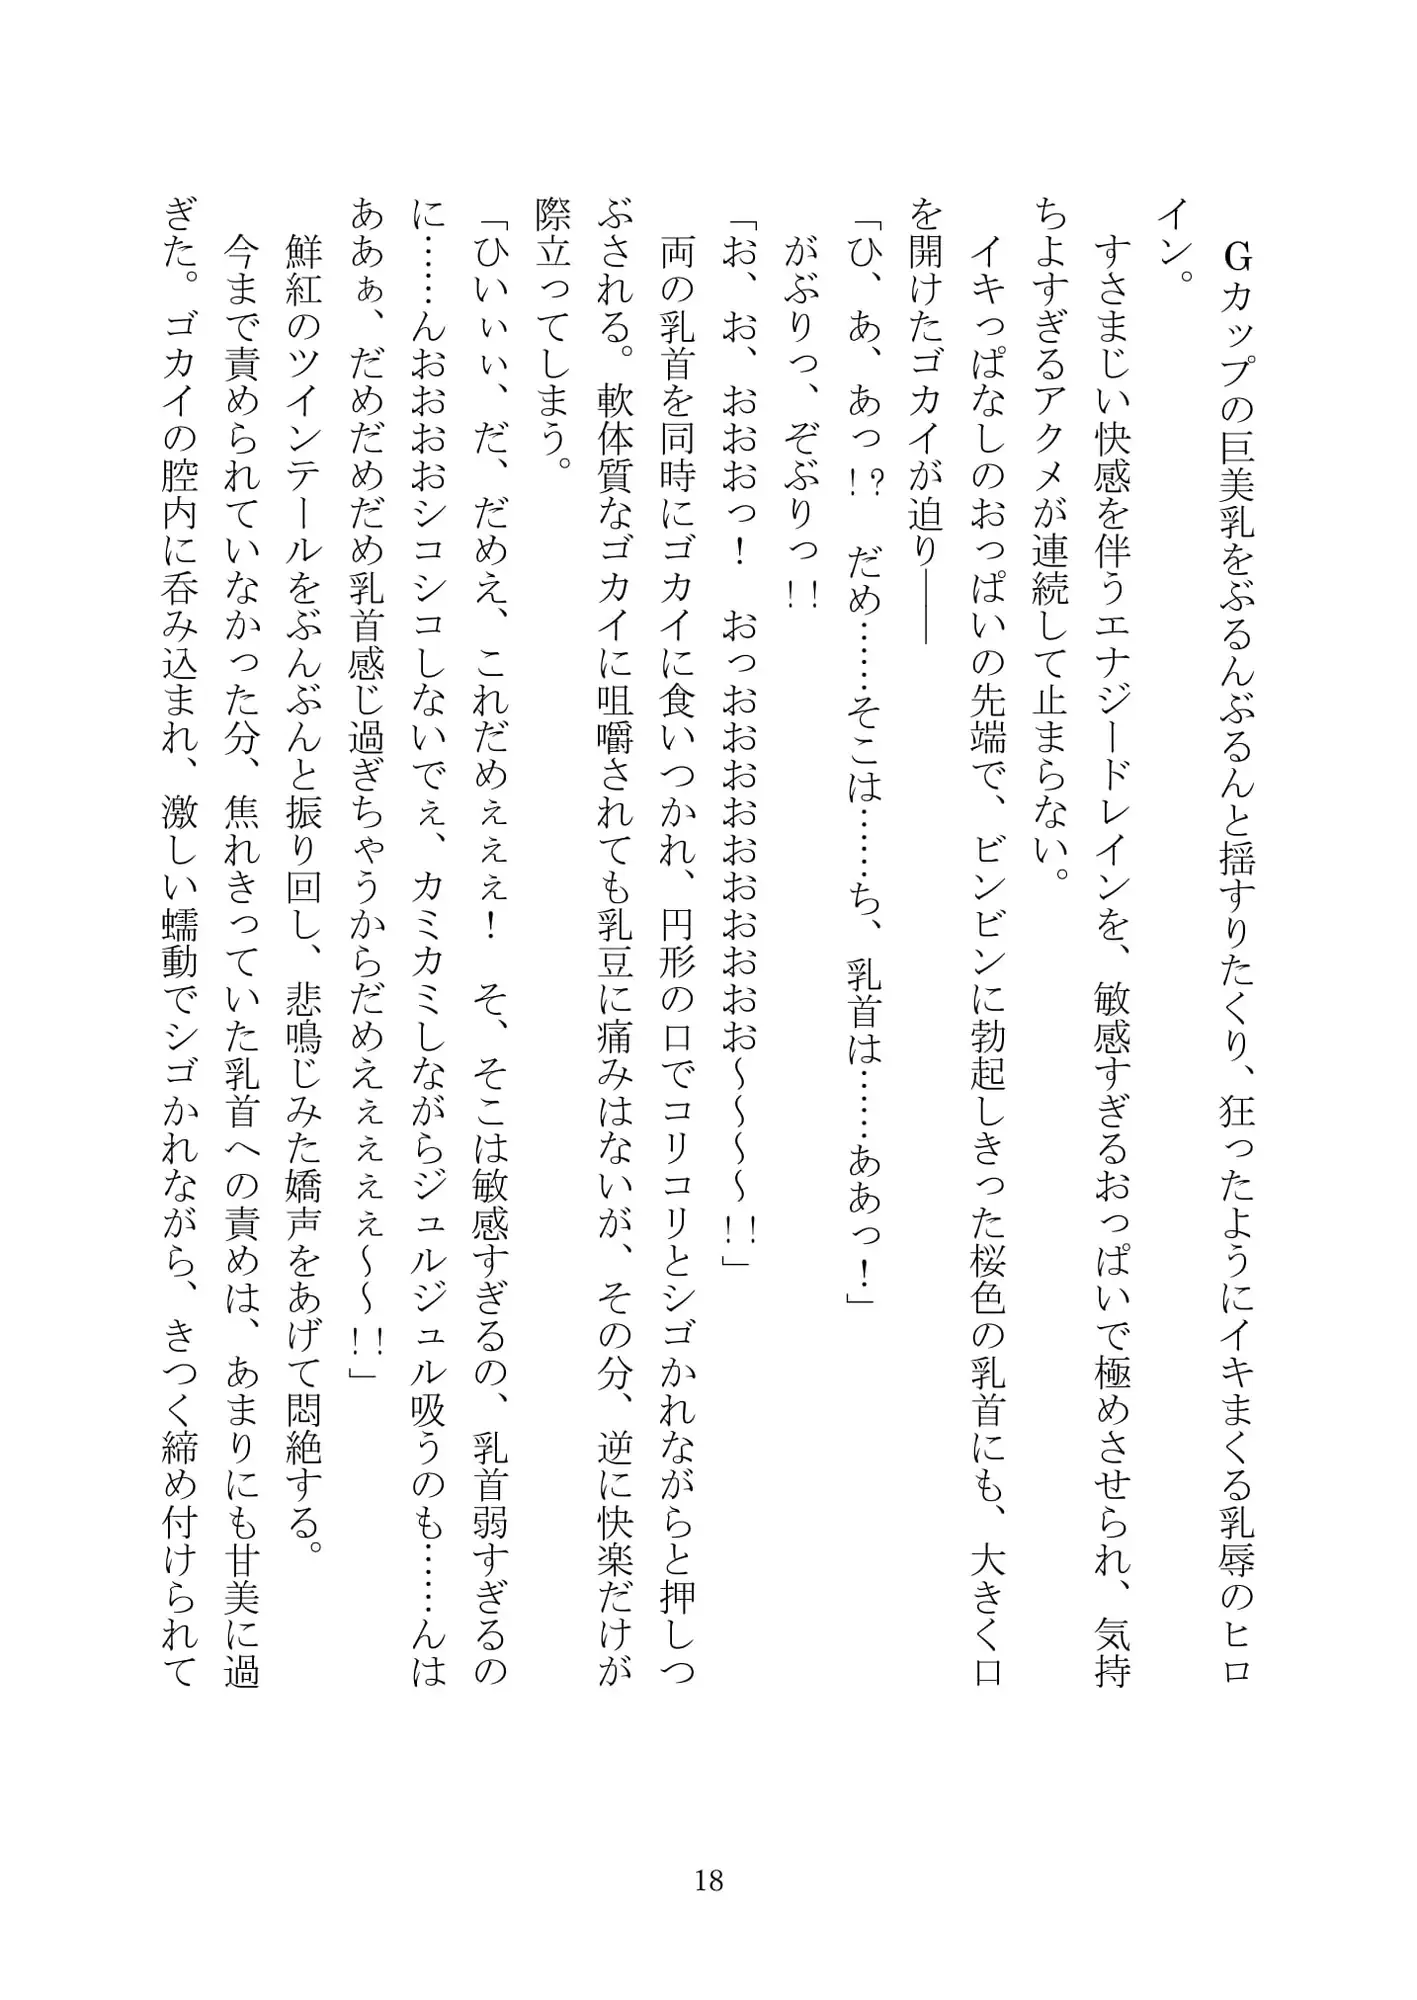 Gカップの巨美乳をぶるんぶるんと揺すりたくり、狂ったようにイキまくる乳辱のヒロ
イン。
すさまじい快感を伴うエナジードレインを、敏感すぎるおっぱいで極めさせられ、気持
ちよすぎるアクメが連続して止まらない。
イキっぱなしのおっぱいの先端で、ビンビンに勃起しきった桜色の乳首にも、大きく口
を開けたゴカイが迫り――
「ひ、あ、あっ!?　だめ……そこは……ち、乳首は……ああっ！」
がぶりっ、ぞぶりっ!!
「お、お、おおおっ！　おっおおおおおおおおおお～～～～!!」
両の乳首を同時にゴカイに食いつかれ、円形の口でコリコリとシゴかれながらと押しつ
ぶされる。軟体質なゴカイに咀嚼されても乳豆に痛みはないが、その分、逆に快楽だけが
際立ってしまう。
「ひいぃぃ、だ、だめえ、これだめぇぇぇ！　そ、そこは敏感すぎるの、乳首弱すぎるの
に……んおおおおシコシコしないでぇ、カミカミしながらジュルジュル吸うのも……んは
ああぁ、だめだめだめ乳首感じ過ぎちゃうからだめえぇぇぇぇ～～!!」
鮮紅のツインテールをぶんぶんと振り回し、悲鳴じみた嬌声をあげて悶絶する。
今まで責められていなかった分、焦れきっていた乳首への責めは、あまりにも甘美に過
ぎた。ゴカイの腔内に呑み込まれ、激しい蠕動でシゴかれながら、きつく締め付けられて
18